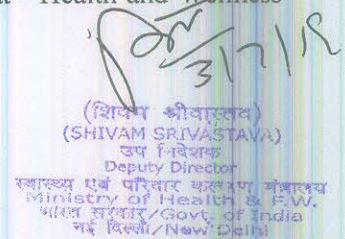 Health and Wellness
3/7/19
(शिवम श्रीवास्तव)
(SHIVAM SRIVASTAVA)
उप निदेशक
Deputy Director
स्वास्थ्य एवं परिवार कल्याण मंत्रालय
Ministry of Health & F.W.
भारत सरकार/Govt. of India
नई दिल्ली/New Delhi